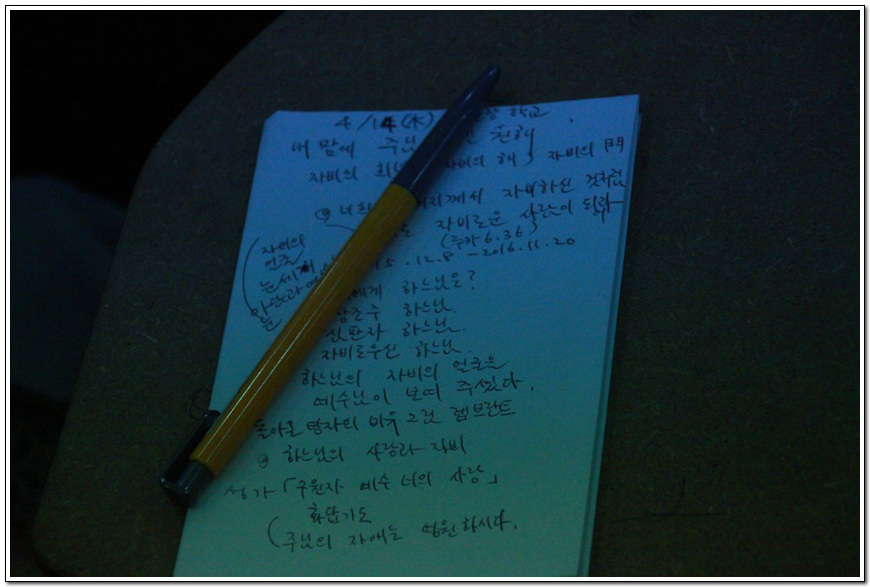 4/14(木) 학교
내 맘에 주님 원해
자비의 희년 자비의 해, 자비의 門
너희 께서 자비하신 것처럼
자비로운 사람이 되라
(루카 6.36)
15.12.8 - 2016.11.20
(자비의
얼굴
눈
에게 하느님은?
창조주 하느님.
심판자 하느님.
자비로우신 하느님.
하느님의 자비의 얼굴을
예수님이 보여 주셨다.
돌아온 탕자의 비유 그린 렘브란트
하느님의 사랑과 자비
성가 「구원자 예수 너의 사랑」
화답기도
(주님의 자애는 영원하시다.